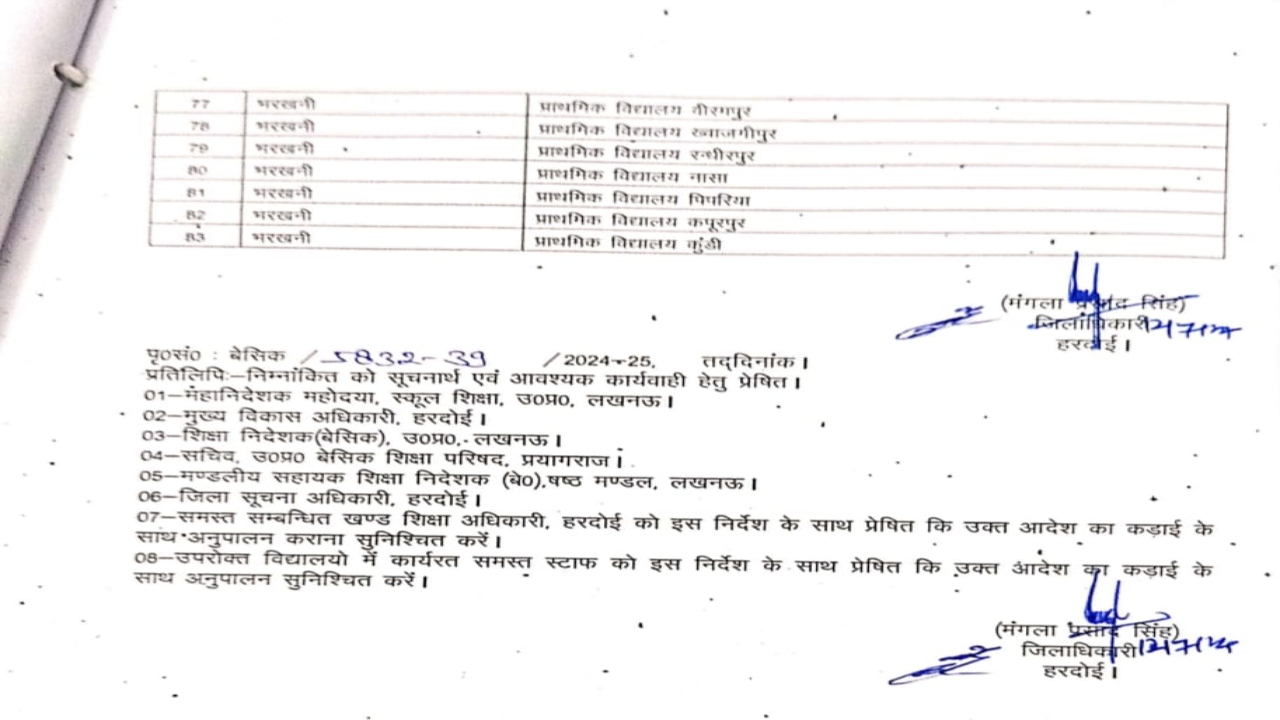 77 भरखनी प्राथमिक विद्यालय वीरमपुर
78 भरखनी प्राथमिक विद्यालय ख्वाजगीपुर
79 भरखनी प्राथमिक विद्यालय रन्धीरपुर
80 भरखनी प्राथमिक विद्यालय नासा
81 भरखनी प्राथमिक विद्यालय पिपरिया
82 भरखनी प्राथमिक विद्यालय कपूरपुर
83 भरखनी प्राथमिक विद्यालय कुंडी
(मंगला प्रसाद सिंह)
जिलाधिकारी
हरदोई।
पृ०सं० : बेसिक / 5832-39 /2024-25, तद्दिनांक।
प्रतिलिपिः-निम्नांकित को सूचनार्थ एवं आवश्यक कार्यवाही हेतु प्रेषित।
01-महानिदेशक महोदया, स्कूल शिक्षा, उ०प्र०, लखनऊ।
02-मुख्य विकास अधिकारी, हरदोई।
03-शिक्षा निदेशक(बेसिक), उ०प्र०, लखनऊ।
04-सचिव, उ०प्र० बेसिक शिक्षा परिषद, प्रयागराज।
05-मण्डलीय सहायक शिक्षा निदेशक (बे०),षष्ठ मण्डल, लखनऊ।
06-जिला सूचना अधिकारी, हरदोई।
07-समस्त सम्बन्धित खण्ड शिक्षा अधिकारी, हरदोई को इस निर्देश के साथ प्रेषित कि उक्त आदेश का कड़ाई के
साथ अनुपालन कराना सुनिश्चित करें।
08-उपरोक्त विद्यालयो में कार्यरत समस्त स्टाफ को इस निर्देश के साथ प्रेषित कि उक्त आदेश का कड़ाई के
साथ अनुपालन सुनिश्चित करें।
(मंगला प्रसाद सिंह)
जिलाधिकारी
हरदोई।